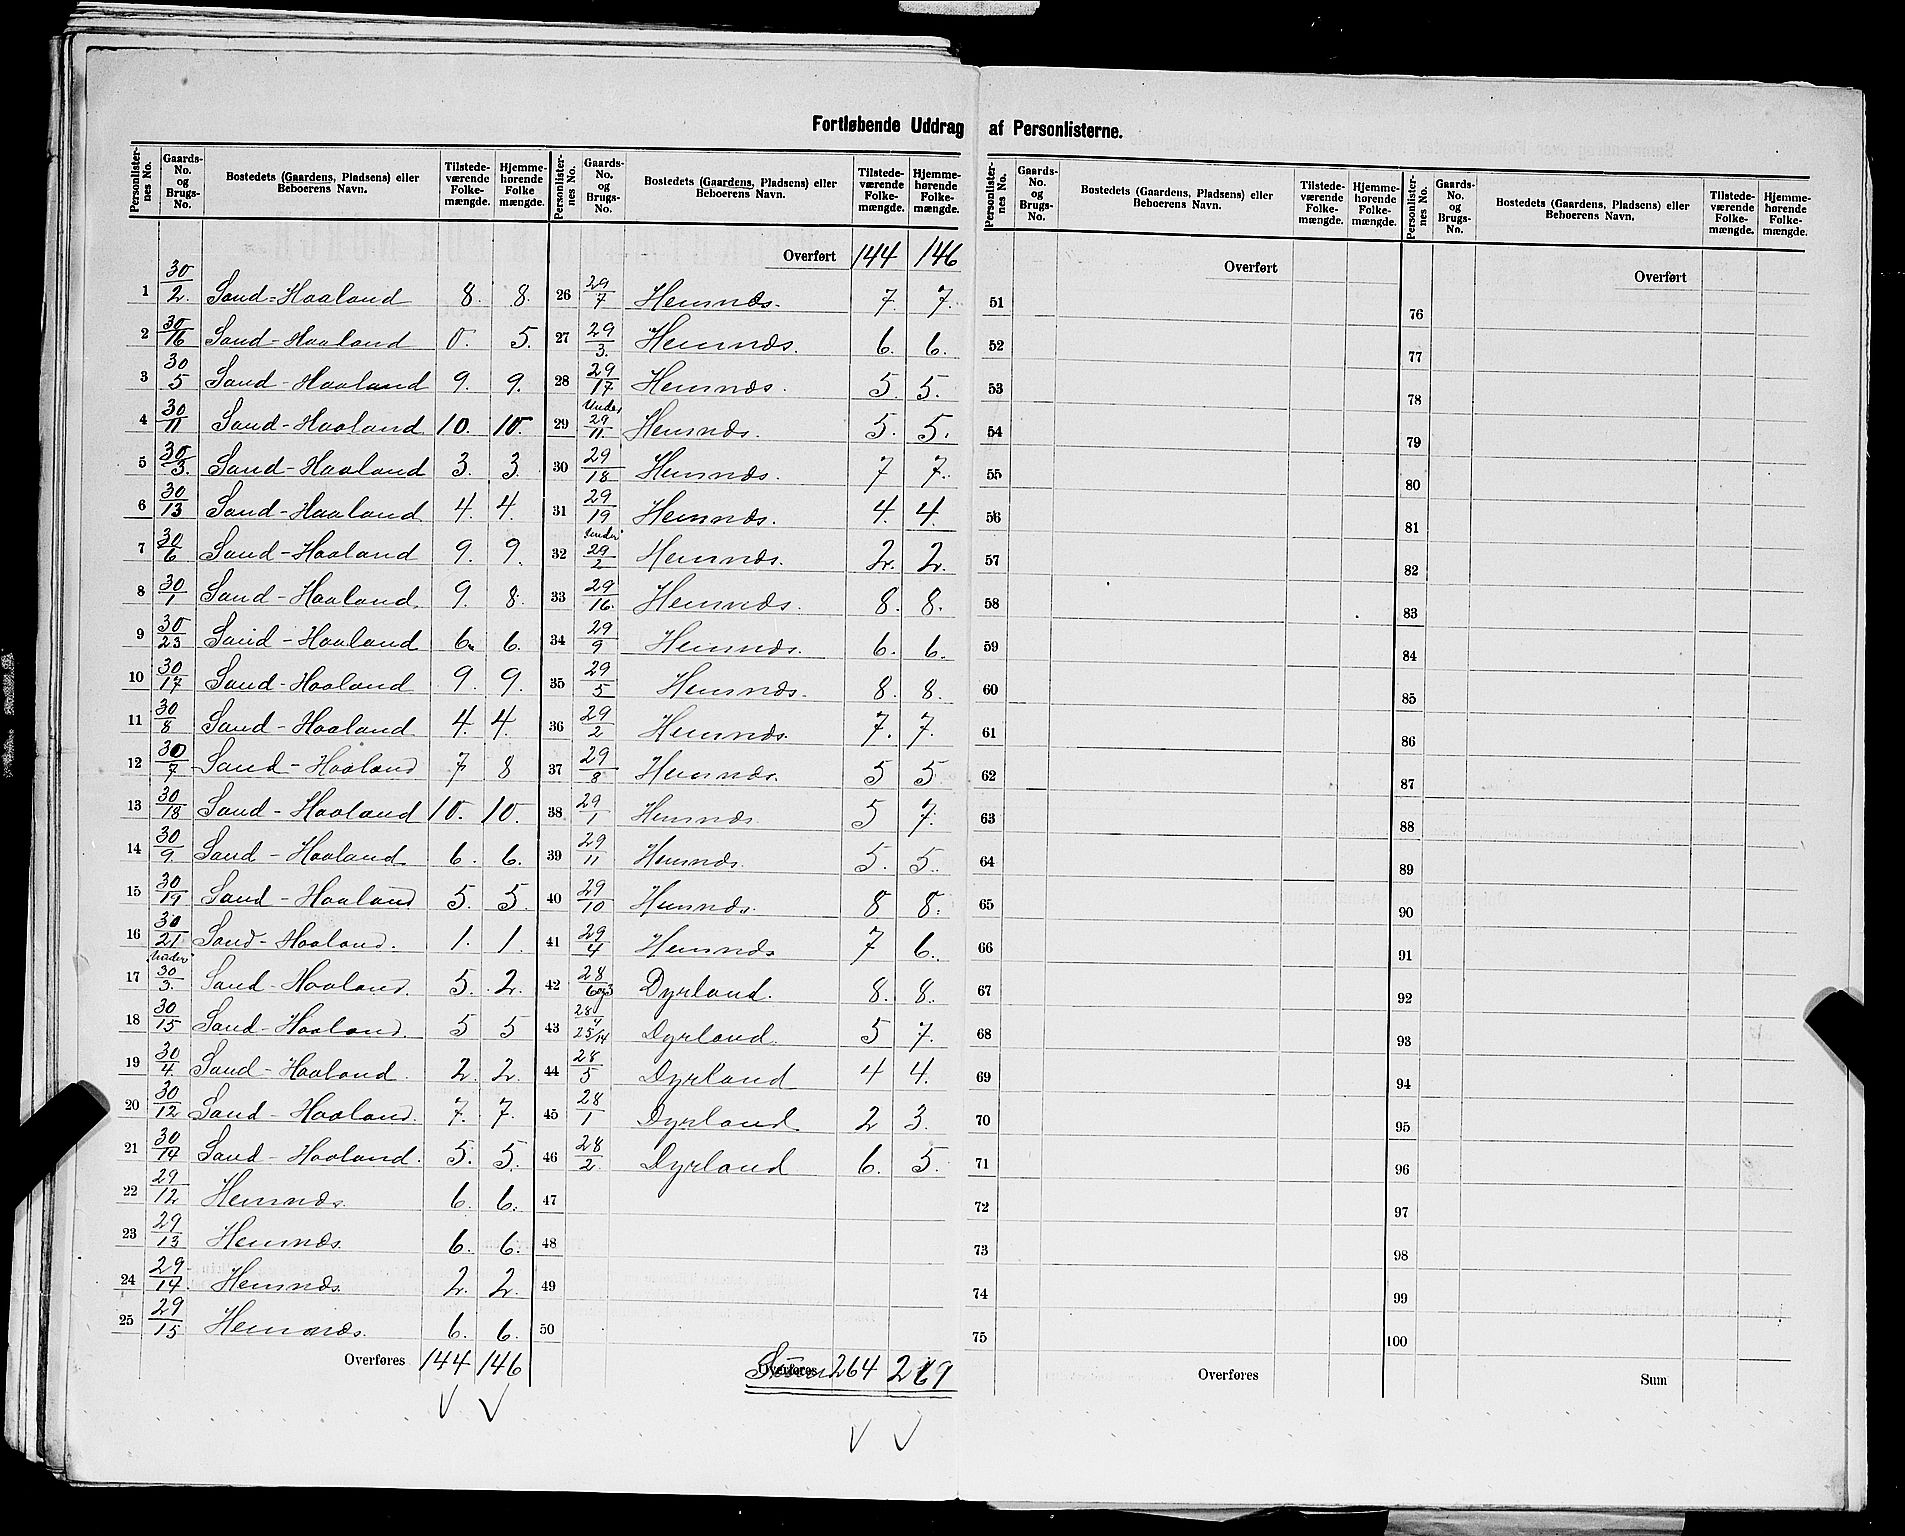 Fortløbende Uddrag af Personlisterne.
Personlister-nes No. | Gaards-No. og Brugs-No. | Bostedets (Gaardens, Pladsens) eller Beboerens Navn. | Tilstede-værende Folke-mængde. | Hjemme-hørende Folke mængde.
1 30/2. Sand-Haaland 8. 8.
2 30/16 Sand-Haaland 0. 5.
3 30/5 Sand-Haaland 9. 9.
4 30/11 Sand-Haaland 10. 10.
5 30/3. Sand-Haaland 3. 3
6 30/13 Sand-Haaland 4. 4.
7 30/6 Sand-Haaland 9. 9.
8 30/1 Sand-Haaland. 9. 8.
9 30/23 Sand-Haaland 6. 6.
10 30/17 Sand-Haaland 9. 9.
11 30/8 Sand-Haaland 4. 4.
12 30/7 Sand-Haaland 7 8
13 30/18 Sand-Haaland 10. 10.
14 30/9 Sand-Haaland 6. 6.
15 30/19 Sand-Haaland 5. 5.
16 30/21 Sand-Haaland. 1. 1.
17 Under 30/3. Sand-Haaland. 5. 2.
18 30/15 Sand-Haaland. 5 5
19 30/4. Sand-Haaland. 2. 2.
20 30/12 Sand-Haaland. 7. 7.
21 30/14 Sand-Haaland. 5. 5.
22 29/12 Hemnæs. 6. 6.
23 29/13 Hemnæs. 6. 6.
24 29/14. Hemnæs. 2. 2.
25 29/15 Hemnæs. 6. 6.
Overføres 144 146
Personlister-nes No. | Gaards-No. og Brugs-No. | Bostedets (Gaardens, Pladsens) eller Beboerens Navn. | Tilstede-værende Folke-mængde. | Hjemme-hørende Folke-mængde.
Overført 144 146
26 29/7 Hemnæs. 7. 7.
27 29/3. Hemnæs. 6. 6.
28 29/17 Hemnæs. 5. 5.
29 Under 29/11. Hemnæs. 5. 5.
30 29/18 Hemnæs. 7 7.
31 29/19 Hemnæs. 4. 4.
32 Under 29/2 Hemnæs. 2. 2.
33 29/16. Hemnæs. 8. 8.
34 29/9 Hemnæs. 6. 6.
35 29/5 Hemnæs. 8. 8.
36 29/2 Hemnæs. 7. 7.
37 29/8 Hemnæs. 5 5
38 29/1 Hemnæs. 5 7.
39 29/11 Hemnæs. 5. 5.
40 29/10 Hemnæs. 8 8.
41 29/4 Hemnæs 7 6.
42 28/6og3 Dyrland. 8. 8.
43 28/4 25/14 Dyrland. 5 7.
44 28/5 Dyrland 4 4.
45 28/1 Dyrland 2 3.
46 28/2. Dyrland 6. 5.
47
48
49
50
Overføres 264 269
Personlister-nes No. | Gaards-No. og Brugs-No. | Bostedets (Gaardens, Pladsens) eller Beboerens Navn. | Tilstede-værende Folke-mængde. | Hjemme-hørende Folke-mængde.
Overført
51
52
53
54
55
56
57
58
59
60
61
62
63
64
65
66
67
68
69
70
71
72
73
74
75
Overføres
Personlister-nes No. | Gaards-No. og Brugs-No. | Bostedets (Gaardens, Pladsens) eller Beboerens Navn. | Tilstede-værende Folke-mængde. | Hjemme-hørende Folke-mængde.
Overført
76
77
78
79
80
81
82
83
84
85
86
87
88
89
90
91
92
93
94
95
96
97
98
99
100
Sum